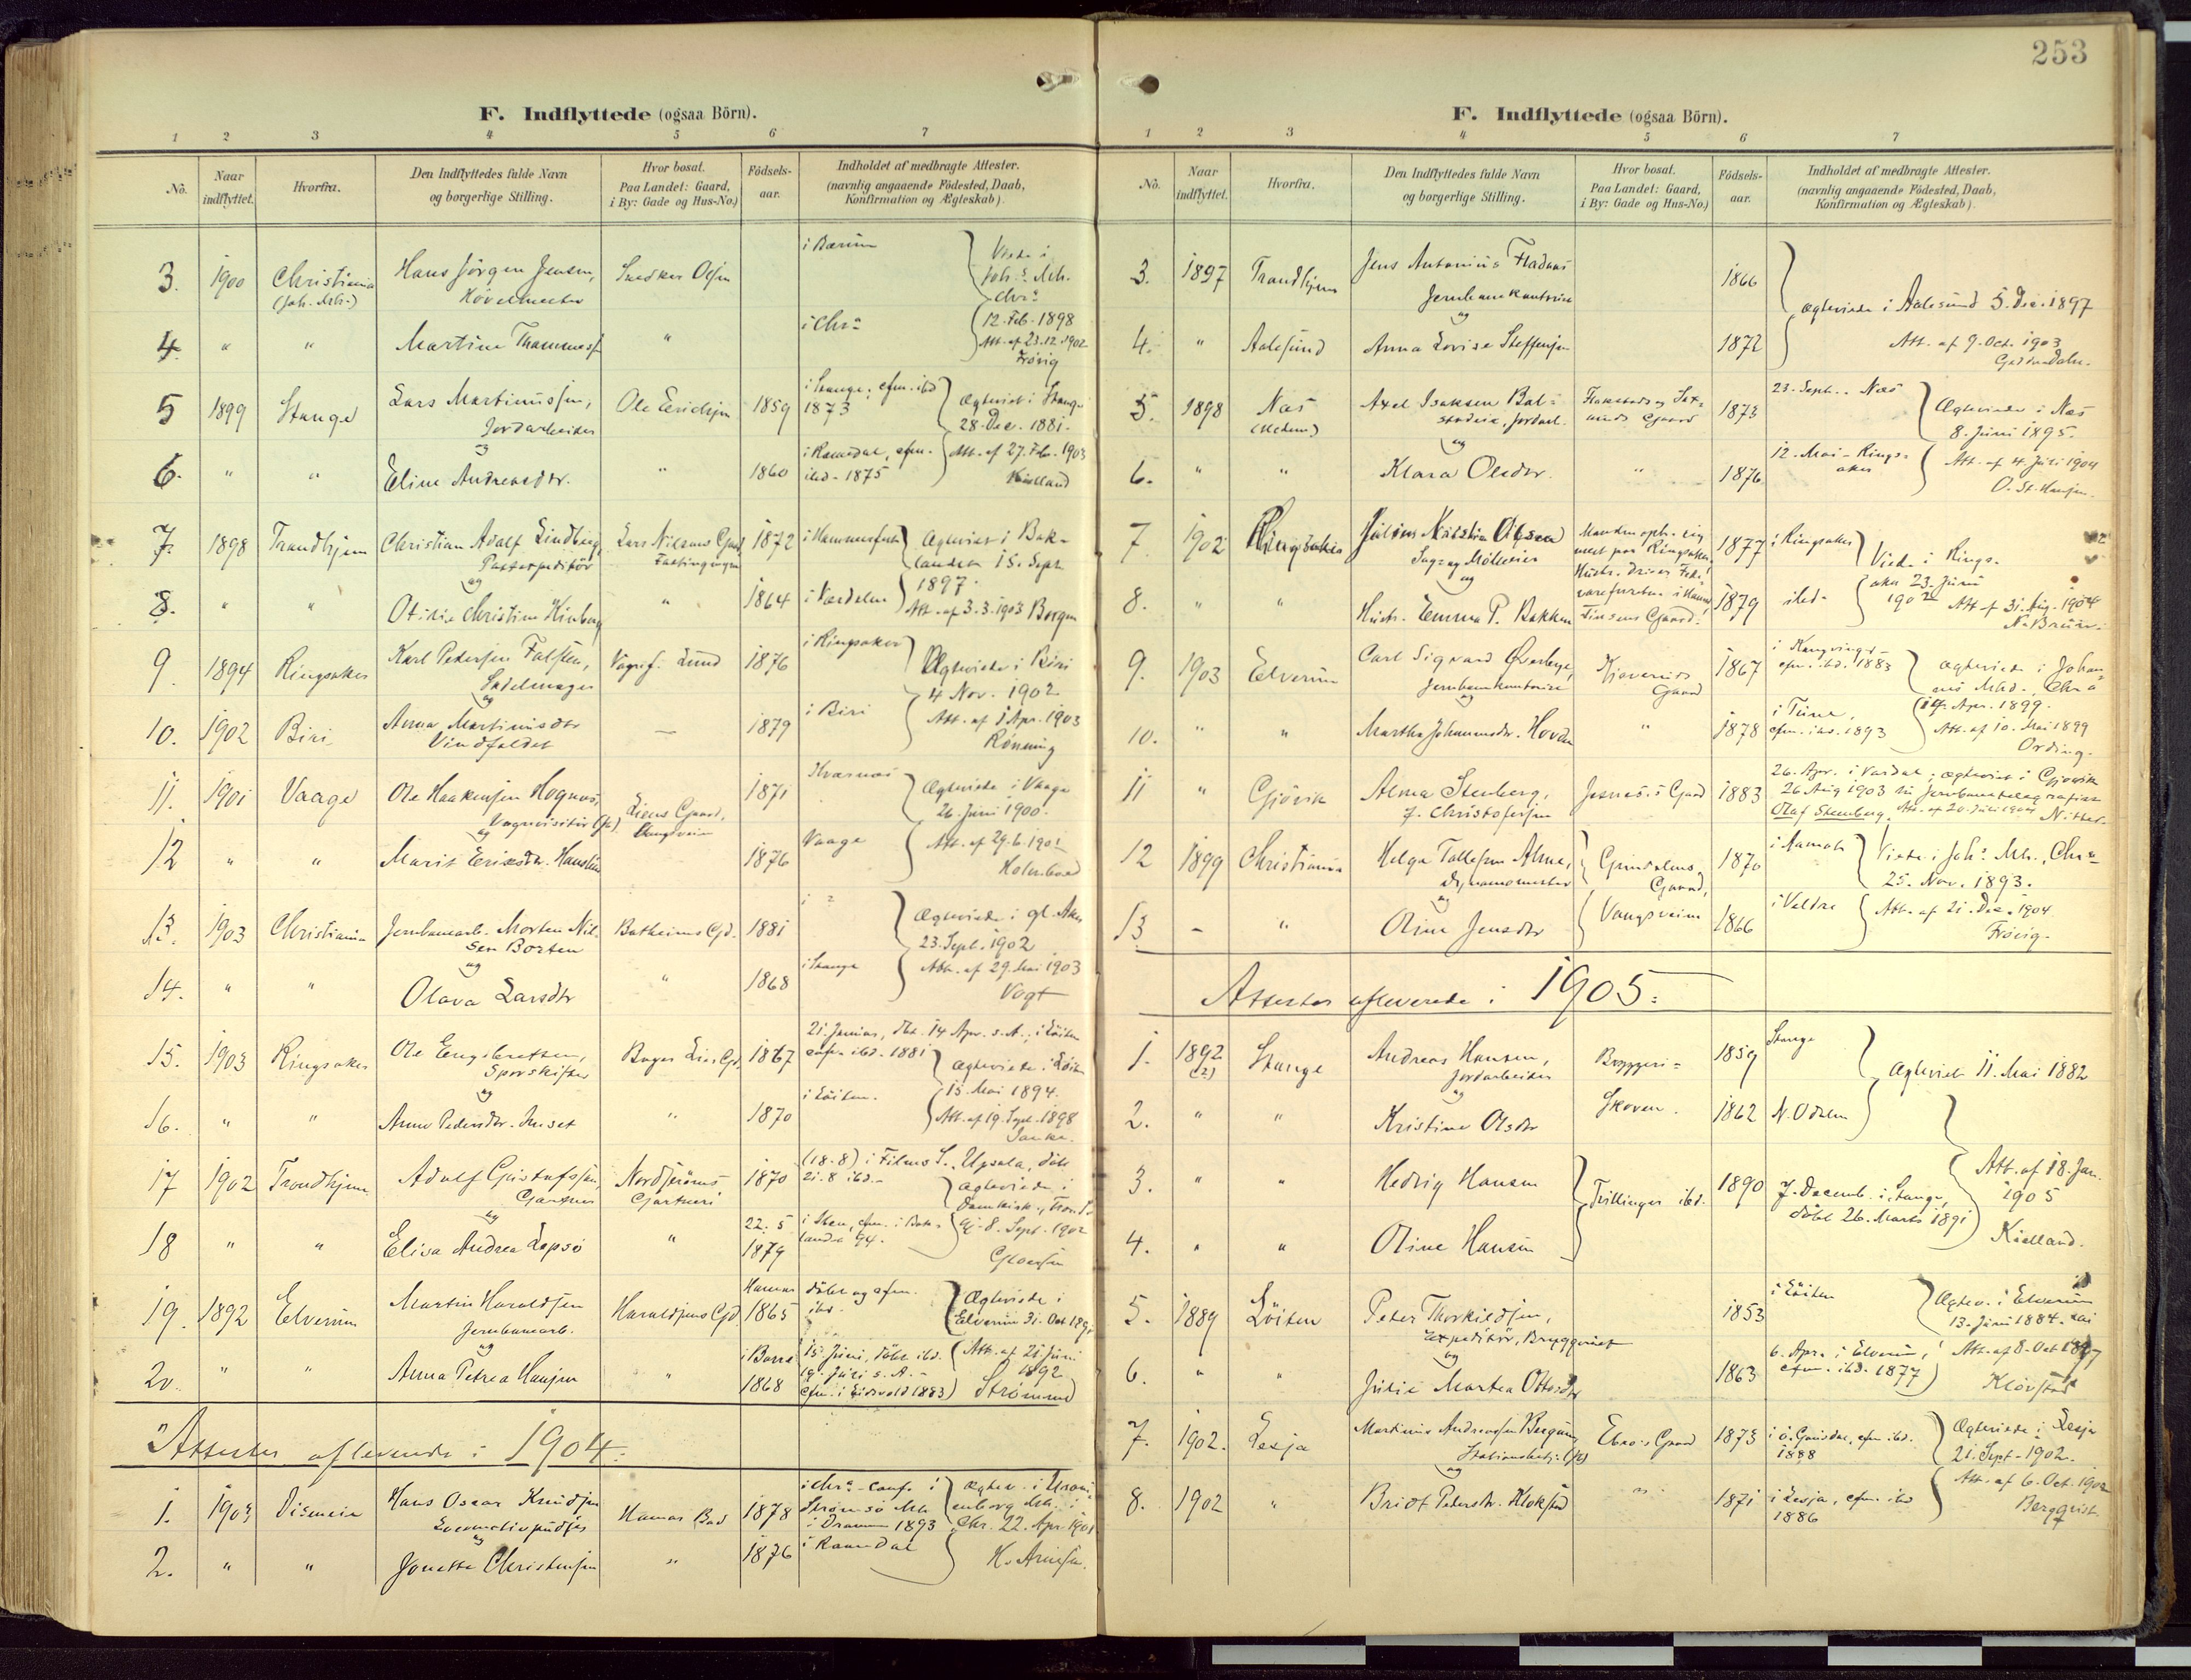 253
F. Indflyttede (ogsaa Börn).
1 2 3 4 5 6 7
No. Naar indflyttet. Hvorfra. Den Indflyttedes fulde Navn og borgerlige Stilling. Hvor bosat. Paa Landet: Gaard, i By: Gade og Hus-No.) Födsels-aar. Indholdet af medbragte Attester. (navnlig angaaende Födested, Daab, Konfirmation og Ægteskab).
3. 1900 Christiania Hans Jörgen Jensen, Snedker Olsen i Bærum Viede i
(Joh. Mh.) Hövelmester Joh.s Mh. Chr.a
4. " " Martine Thommess " i Chr.a 12. Feb. 1898
Att. af 23.12.1902
5 1899 Stange Lars Martinussen, Ole Erichsen 1859 i Stange, cfm. ibd 1873 Ægteviet i Stange
Jordarbeider 28. Dec. 1881.
og
6. " " Eline Andreasdtr. " 1860 i Romedal, cfm. ibd. 1875 Att. af 27. Feb. 1903
Kielland
7. 1898 Trondhjem Christian Adolf Lindberg Lars Nilsens Gaard 1872 i Hammerfest Ægteviet i Bak-
og landet 15. Sept
1897.
8. " " Otilie Christine Hinberg " 1864 i Værdalen Att. af 3.3.1903 Borgen
9. 1894 Ringsaker Karl Pedersen Falsten, Vognf. Lund 1876 i Ringsaker Ægteviede i Biri
Sadelmager 4 Nov. 1902
og
10. 1902 Biri Anna Martinusdtr — 1879 i Biri Att. af 1 Apr. 1903
Vindfaldet Rönning
11. 1901 Vaage Ole Haakensen Hognes, Liens Gaard, 1871 Kvarnæs Ægteviede i Vaage
Vognvisitör (Jb.) Vangsveien 26. Juni 1900.
og
12 " " Marit Eriksdtr. 1876 Vaage Att. af 29.6.1901
Holmboe
13. 1903 Christiania Jernbanearb. Morten Nil- Batheims Gd. 1881 Ægteviede i gl. Aker
sen Borten 23. Sept. 1902
og
14. " " Olava Larsdtr " 1868 i Stange Att. af 29. Mai 1903
Vogt
15. 1903 Ringsaker Ole Engebretsen, Bager Lies Gd. 1867 21. Januar, dbt. 14 Apr. s. A., i Löiten
Sporskifter cfm. ibd. 1881 Ægteviede i Löiten
og 15. Mai 1894.
16. " " Anne Pedersdtr. " 1870 i Löiten. Att. af 19. Sept. 1898
17 1902 Trondhjem Adolf Gustafssen, Gartneri 1870 (18.8) i Films S., Upsala, döbt
Gartner 21.8 ibd. Ægteviede i
og Domkirk., Trond-
18 " " Elisa Andrea Lepsö " 22.5 1879 i Sken, cfm. i Bak- landet 94. hj. 8. Sept. 1902
19. 1892 Elverum Martin Haraldsen Haraldsens Gd. Hamar 1865 döbt og cfm. ibd. Ægteviede i
Jernbanearb. Elverum 31. Oct 1891
og
20. " " Anna Petrea Hansen " i Borre 1868 15. Juni, döbt ibd. Att. af 21 Juni
19. Juli s. A. 1892
cfm. i Eidsvold 1883 Strömmed
Attester afleverede i 1904.
1. 1903 Disenaa Hans Oscar Knudsen Hamar Bad 1878 i Chr.a conf. i Ægtev. i Urani-
Locomotivpudser Strömsö Mh. enborg Mh. i
og i Drammen 1893 Chr. 22. Apr. 1901
2. " " Jonette Christensen " 1876 i Romedal
F. Indflyttede (ogsaa Börn).
1 2 3 4 5 6 7
No. Naar indflyttet. Hvorfra. Den Indflyttedes fulde Navn og borgerlige Stilling. Hvor bosat. Paa Landet: Gaard, i By: Gade og Hus-No.) Födsels-aar. Indholdet af medbragte Attester. (navnlig angaaende Födested, Daab, Konfirmation og Ægteskab).
3. 1897 Trondhjem Jens Antonius Fladnæs 1866
Jernbanekontorist Ægteviede i Aalesund 5. Dec. 1897
og
4. " Aalesund Anna Lovise Steffensen 1872 Att. af 9. Oct. 1903
5. 1898 Næs Axel Isaksen Bal- 1873 23. Sept. Næs Ægteviede i Næs
stadeie, Jordarb. Gaard 8. Juni 1895.
og
6. " " Klara Olesdtr. " 1876 12. Mai - Rings- aker Att. af 4. Juli 1904
O. St. Hansen.
7 1902 Ringsaker Olsen Manden oph. sig 1877 i Ringsaker Viede i Rings-
Sag og Mölleeier mest paa Ringsaker. aker 23. Juni
og Hustr. driver Fede- 1902
8. " " Hustr. Emma P. Bakken varefurretn. i Hans 1879 ibd. Att. af 31. Aug. 1904
Finsens Gaard. N. Bruun.
9. 1903 Elverum Carl Sigvard Överbye, Gaard 1867 i Kongsvinger
Jernbanekontorist cfm. ibd. 1883 Ægteviede i Johan-
og nes Mhd., Chr.a
10. " " Martha Johannesdtr. Hovde " 1878 i Tune, 14. Apr. 1899.
cfm. ibd. 1893 Att. af 10. Mai 1899
Ording.
11 " Gjövik Alma Stenberg, Gaard 1883 26. Apr. i Vardal; ægteviet i Gjövik
f. Christofersen 26 Aug 1903 til Jernbanetelegrafist
Olaf Stenberg. Att. af 20. Juli 1904
12 1899 Christiania Helge Tollefsen Alme, Grindalens 1870 i Aamot Viede i Joh.s Mh., Chr.a
Gaard, 25. Nov. 1893.
og
13 - " Oline Jensdtr Vangsveien 1866 i Veldre Att. af 21. Dec. 1904
Attester afleverede i 1905.
1. 1892 Stange Andreas Hansen, Bryggeri- 1859 Stange Ægteviet 11. Mai 1882
(?) Jordarbeider
og
2. " " Kristine Olsdtr Skoven. 1862 N. Odalen
3. " " Hedvig Hansen Tvillinger ibd. 1890 7. Decemb. i Stange, Att. af 18. Jan.
döbt 26. Marts 1891 1905
4. " " Oline Hansen Kielland.
5. 1889 Löiten Peter Thorkildsen, 1853 i Löiten Ægtev. i Elverum
Expeditör, Bryggeriet 13. Juni 1884.
og
6. " " Julie Martea Ottersdtr 1863 6. Apr. i Elverum, Att. af 8. Oct 1897
cfm. ibd. 1877 Klövstad
7. 1902. Lesja Martinus Andreassen Gaard 1873 i ö. Gausdal, cfm. ibd. Ægteviede i Lesja
Stationsbetj. (Jb) 1888 21. Sept. 1902.
og
8. 1902 " Bridt Pedersdtr. " 1871 i Lesja, cfm. ibd Att. af 6. Oct. 1902
1886 Bergqvist